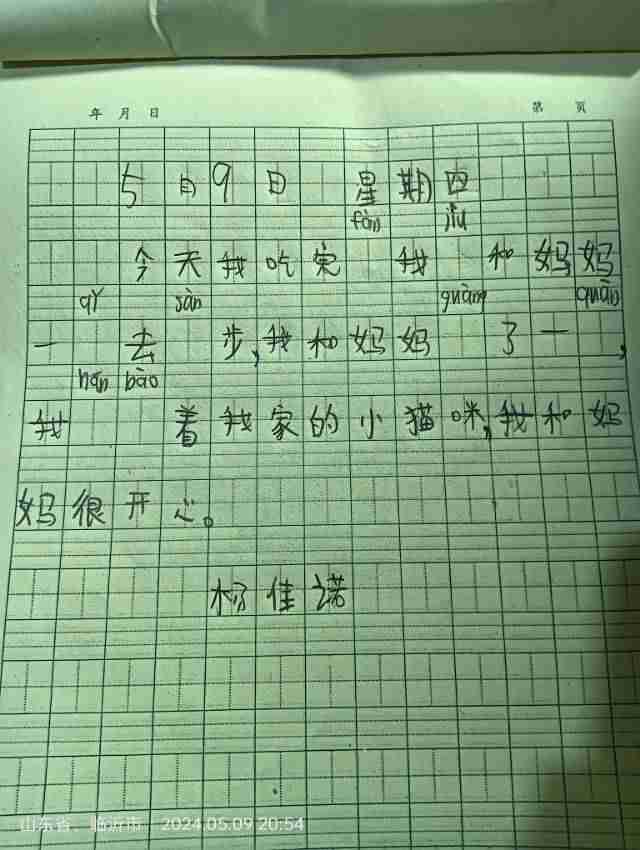 年 月 日 第 页
5月9日 星期四
fàn jiù
今天我吃完 我 和妈妈
qǐ sàn guàng quān
一 去 步,我和妈妈 了一 ,
bào
我 着我家的小猫咪,我和妈
妈很开心。
杨佳诺
山东省、临沂市 2024.05.09 20:54